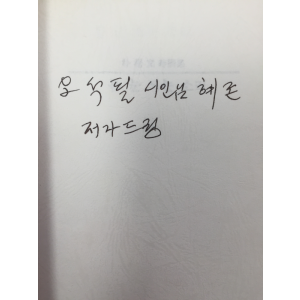 오석필 시인님 혜존
저자드림